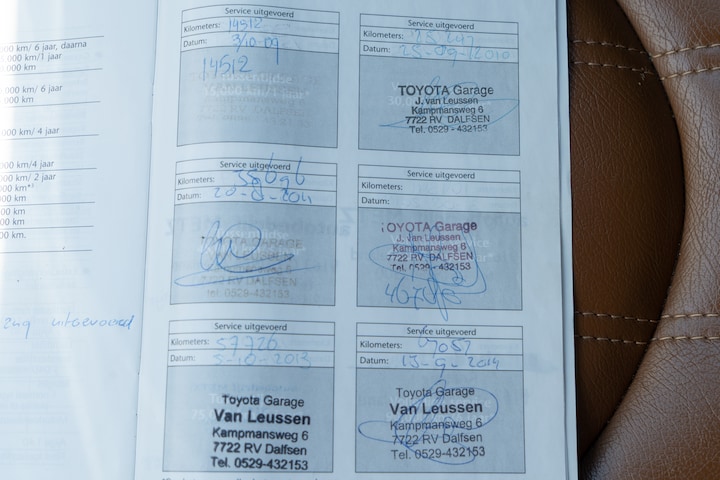 00 km/ 6 jaar, daarna
000 km/1 jaar
000 km
00 km/ 6 jaar
00 km
00 km/ 4 jaar
00 km/4 jaar
00 km/ 2 jaar
00 km
00 km
00 km.
uitgevoerd
Service uitgevoerd
Kilometers: 14512
Datum: 3/10-09
14512
Tussentijdse
15.000 km/1 jaar*
Service uitgevoerd
Kilometers:
Datum: 25-09-2010
TOYOTA Garage
J. van Leussen
Kampmansweg 6
7722 RV DALFSEN
Tel. 0529 - 432153
Service uitgevoerd
Kilometers: 35696
Datum:
TOYOTA GARAGE
DALFSEN
tel 0529-432153
Service uitgevoerd
Kilometers:
Datum:
TOYOTA Garage
J. van Leussen
Kampmansweg 6
7722 RV DALFSEN
Tel. 0529 - 432153
Service uitgevoerd
Kilometers: 57726
Datum: 5-10-2013
Toyota Garage
Van Leussen
Kampmansweg 6
7722 RV Dalfsen
Tel. 0529-432153
Service uitgevoerd
Kilometers:
Datum: 13-9-2014
Toyota Garage
Van Leussen
Kampmansweg 6
7722 RV Dalfsen
Tel. 0529-432153